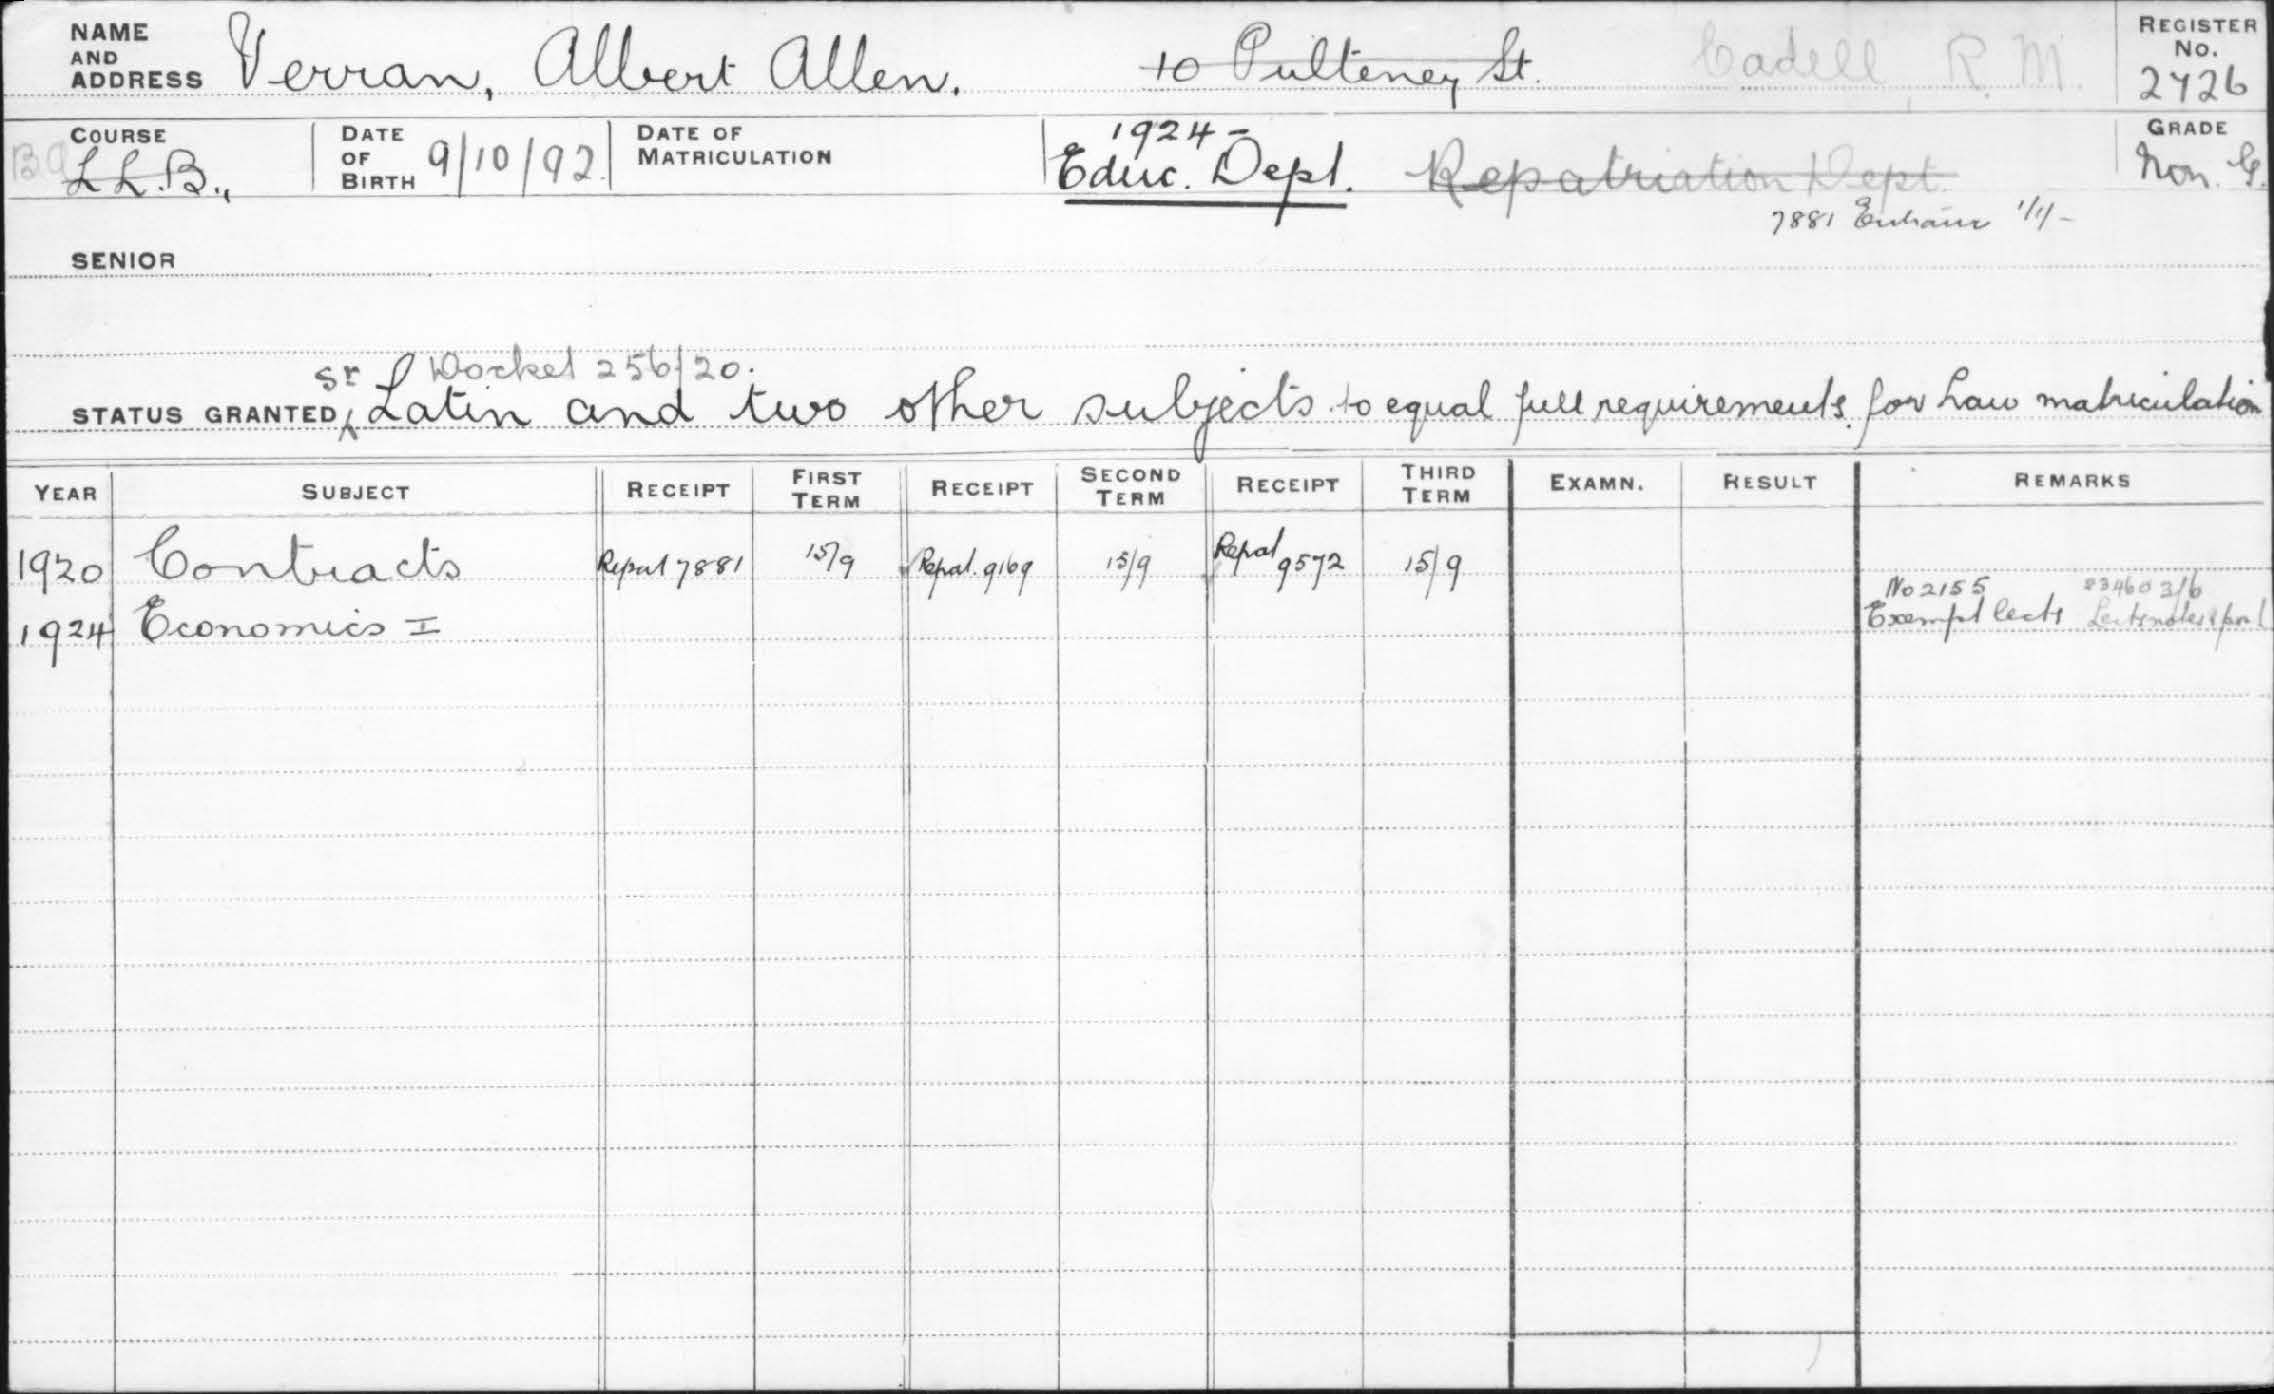 NAME AND ADDRESS Verran, Albert Allen. 10 Pulteney St. Cadell, R. M. REGISTER No. 2726
COURSE BA LL.B., DATE OF BIRTH 9/10/92. DATE OF MATRICULATION 1924 - Educ. Dept. Repatriation Dept. GRADE Non. G.
7881 Entrance 1/1/-
SENIOR
Sr Docket 256/20.
STATUS GRANTED Latin and two other subjects to equal full requirements for Law matriculation
YEAR SUBJECT RECEIPT FIRST TERM RECEIPT SECOND TERM RECEIPT THIRD TERM EXAMN. RESULT REMARKS
1920 Contracts Repat 7881 15/9 Repat. 9169 15/9 Repat 9572 15/9
No 2155 23460 3/6
1924 Economics I Exempt lects